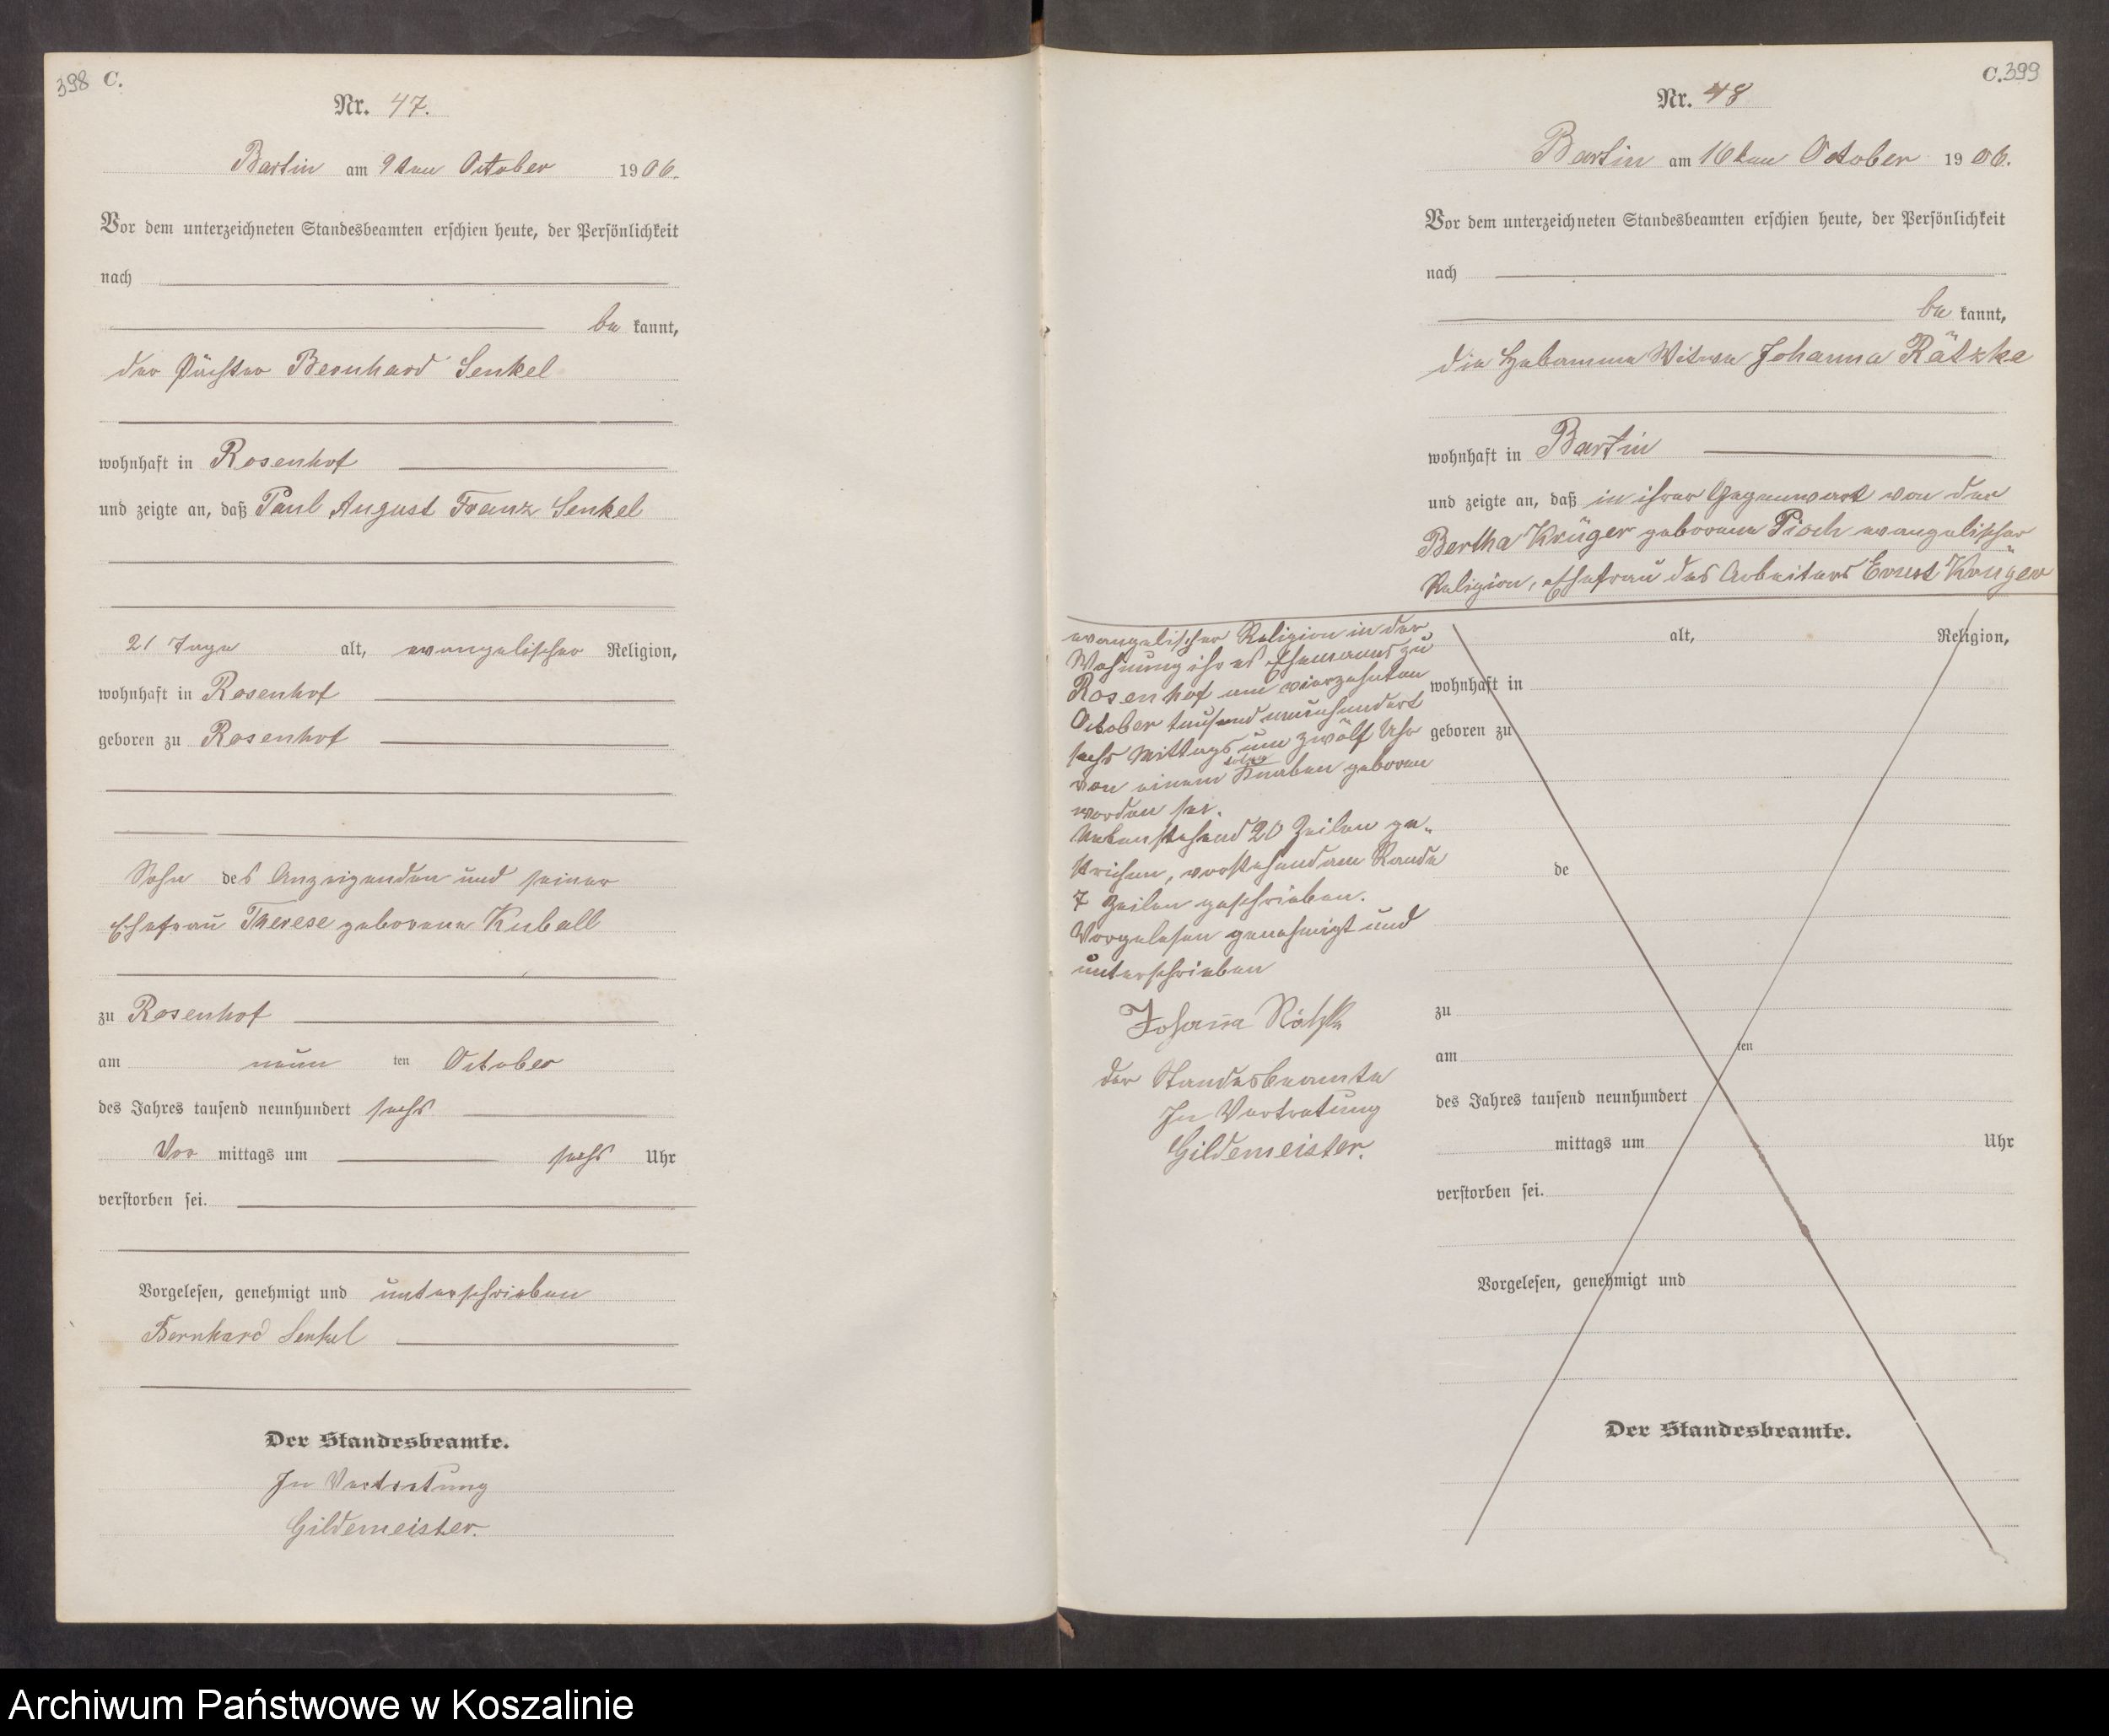 398 C.
Nr. 47.
Bartin am 9ten October 1906.
Vor dem unterzeichneten Standesbeamten erschien heute, der Persönlichkeit
nach
be kannt,
der Bernhard Senkel
wohnhaft in Rosenhof
und zeigte an, daß Paul August Franz Senkel
21 Tage alt, evangelischer Religion,
wohnhaft in Rosenhof
geboren zu Rosenhof
Sohn des Anzeigenden und seiner
Ehefrau Therese geborene Kuball
zu Rosenhof
am neun ten October
des Jahres tausend neunhundert sechs
Vor mittags um sechs Uhr
verstorben sei.
Vorgelesen, genehmigt und unterschrieben
Bernhard Senkel
Der Standesbeamte.
In Vertretung
Gildemeister.
C. 399
Nr. 48
Bartin am 16ten October 1906.
Vor dem unterzeichneten Standesbeamten erschien heute, der Persönlichkeit
nach
be kannt,
die Hebamme Witwe Johanna Rätzke
wohnhaft in Bartin
und zeigte an, daß in ihrer Gegenwart von der
Bertha Krüger geborene Pioch evangelischer
Religion, Ehefrau des Arbeiters Ernst Krüger
evangelischer Religion in der
Wohnung ihres Ehemannes zu
Rosenhof am vierzehnten
October tausend neunhundert
sechs Mittags um zwölf Uhr
von einem Knaben geboren
worden sei.
Nebenstehend 20 Zeilen ge-
strichen, vorstehend am Rande
7 Zeilen geschrieben.
Vorgelesen genehmigt und
unterschrieben
Johanna Rätzke
der Standesbeamte
In Vertretung
Gildemeister.
alt, Religion,
wohnhaft in
geboren zu
de
zu
am ten
des Jahres tausend neunhundert
mittags um Uhr
verstorben sei.
Vorgelesen, genehmigt und
Der Standesbeamte.
Archiwum Państwowe w Koszalinie